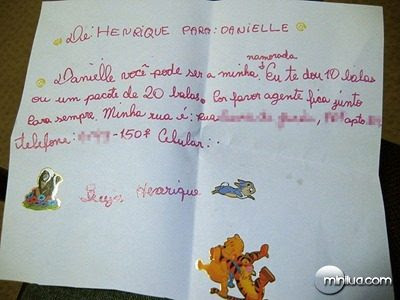 De: HENRIQUE PARA: DANIELLE
namorada
Danielle você pode ser a minha. Eu te dou 10 balas
ou um pacote de 20 balas. Por favor agente fica junto
para sempre. Minha rua é: rua apto
telefone: -150 Celular:
Beijos Henrique
minilua.com